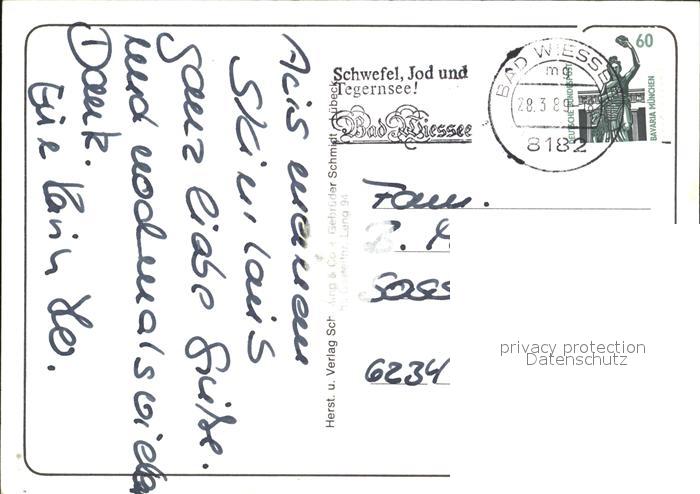 Aus meinem
Skiurlaub
ganz liebe Grüße.
und nochmals vielen
Dank.
Schwefel, Jod und
Tegernsee!
Bad Wiessee
BAD WIESSEE
mg
28.3.89
8182
60
DEUTSCHE BUNDESPOST
BAVARIA MÜNCHEN
Herst. u. Verlag Sch & Co. Gebrüder Schmidt Lübeck
Fam.
6234
privacy protection
Datenschutz